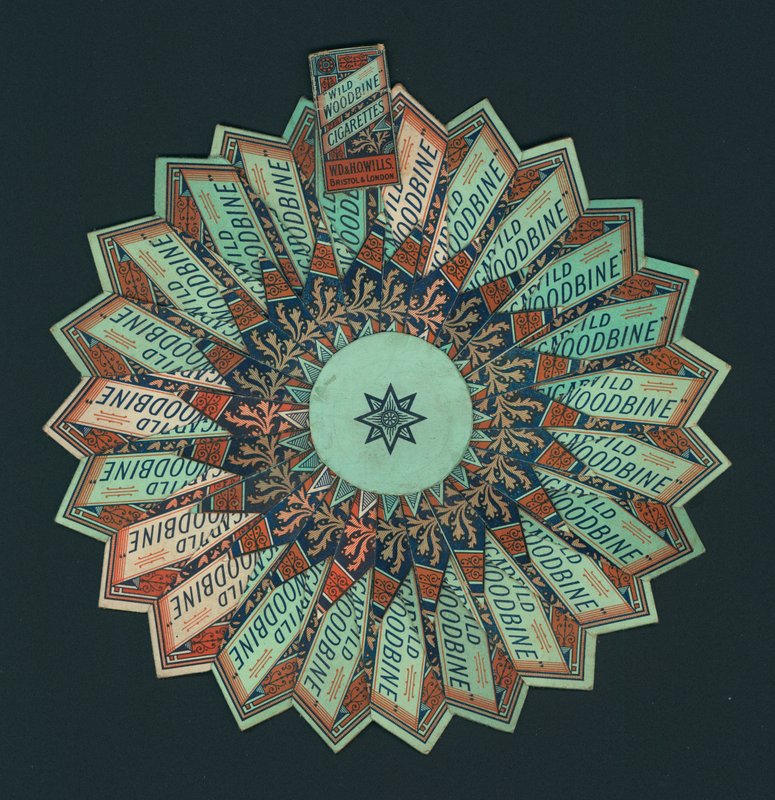 WILD
WOODBINE"
CIGARETTES
W.D.& H.O.WILLS.
BRISTOL & LONDON.
WOODBINE"
WILD
WOODBINE"
WILD
WOODBINE"
WILD
WOODBINE"
WILD
WOODBINE"
WILD
WOODBINE"
WILD
WOODBINE"
WILD
WOODBINE"
WILD
WOODBINE"
WILD
WOODBINE"
WILD
WOODBINE"
WILD
WOODBINE"
WILD
WOODBINE"
WILD
WOODBINE"
WILD
WOODBINE"
WILD
WOODBINE"
WILD
WOODBINE"
WILD
WOODBINE"
WILD
WOODBINE"
WILD
WOODBINE"
WILD
WOODBINE"
WOODBINE"